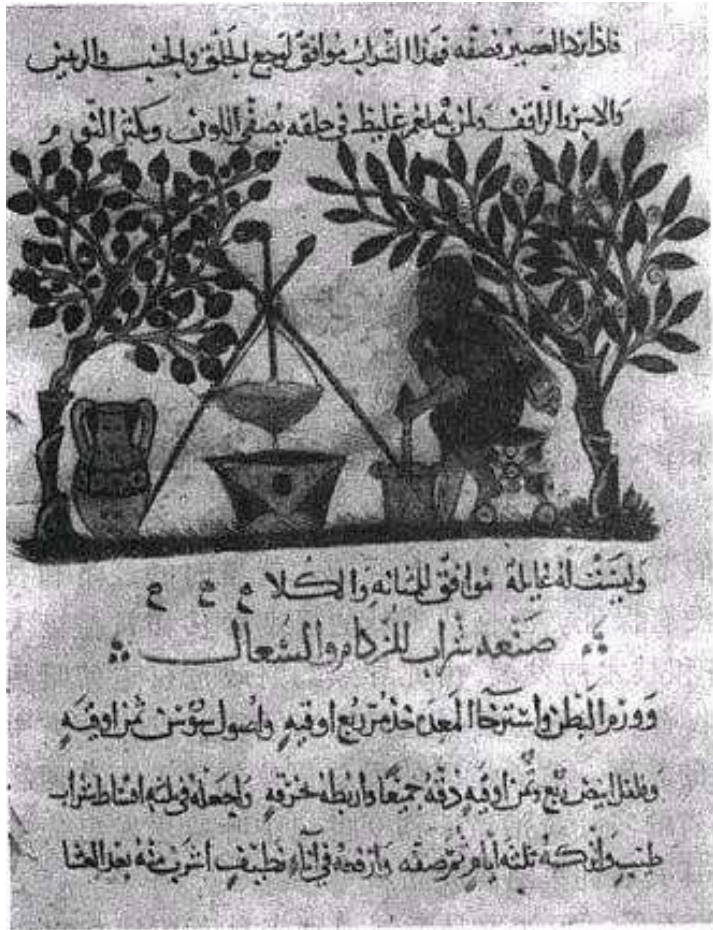 فاذا برد العصير فصفه فهذا الشراب موافق لوجع الحلق والجنب والرئتين
ولمن به بلغم غليظ في حلقه يصفي اللون ويكثر النوم
وليست له غايلة موافق للمثانه والكلا
صنعه شراب للزكام والسعال
وورم البطن واسترخا المعده خذ مر ربع اوقيه واصول سوسن ثمن اوقيه
وفلفل ابيض ربع وثمن اوقيه دقه جميعا واربطه بخرقه واجعله في ثلثه اقساط شراب
طيب واتركه ثلثه ايام ثم صفه وارفعه في اناء نظيف اشرب منه بعد العشا